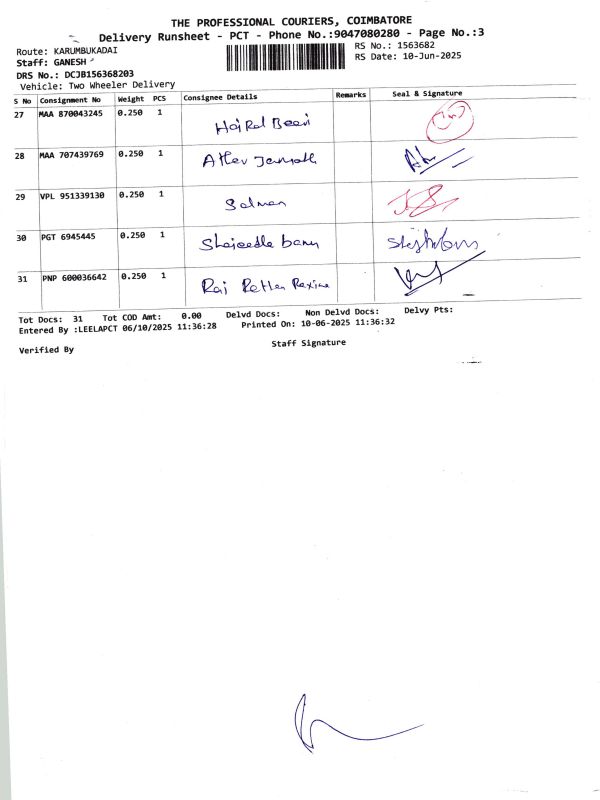 THE PROFESSIONAL COURIERS, COIMBATORE
Delivery Runsheet - PCT - Phone No.:9047080280 - Page No.:3
Route: KARUMBUKADAI RS No.: 1563682
Staff: GANESH RS Date: 10-Jun-2025
DRS No.: DCJB156368203
Vehicle: Two Wheeler Delivery
S No Consignment No Weight PCS Consignee Details Remarks Seal & Signature
27 MAA 870043245 0.250 1
28 MAA 707439769 0.250 1
29 VPL 951339130 0.250 1 Salman
30 PGT 6945445 0.250 1 banu
31 PNP 600036642 0.250 1 Raj Rexine
Tot Docs: 31 Tot COD Amt: 0.00 Delvd Docs: Non Delvd Docs: Delvy Pts:
Entered By :LEELAPCT 06/10/2025 11:36:28 Printed On: 10-06-2025 11:36:32
Verified By Staff Signature